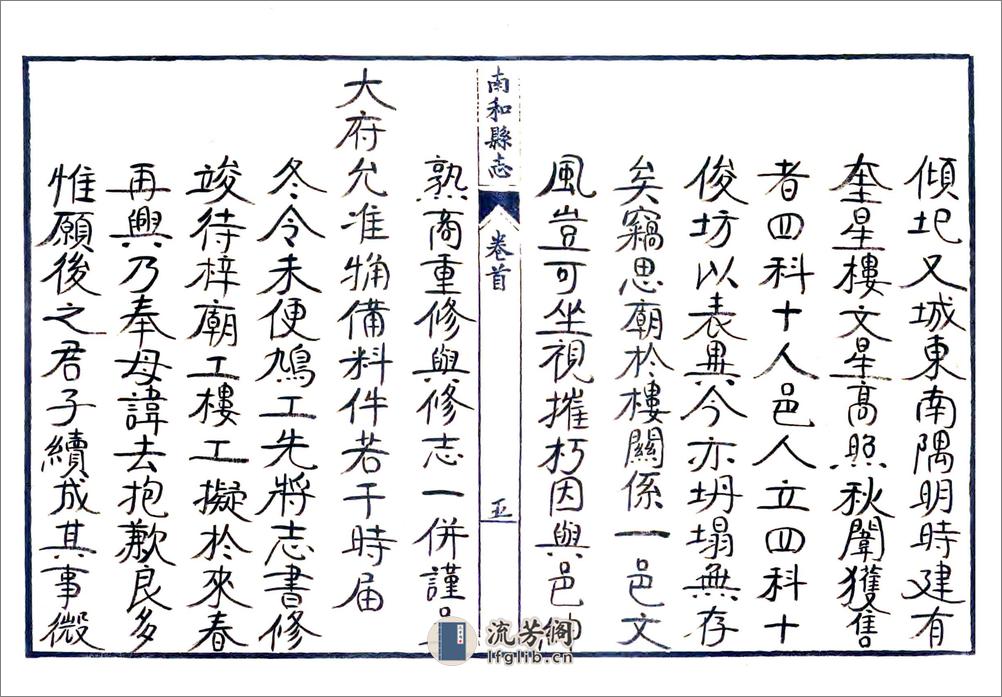 傾圮又城東南隅明時建有
奎星樓文星高照秋闈獲售
者四科十人邑人立四科十
俊坊以表異今亦坍塌無存
矣竊思廟於樓關係一邑文
風豈可坐視摧朽因與邑
南和縣志 卷首 五
熟商重修與修志一併謹
大府允准備料件若干時届
冬令未便鳩工先將志書修
竣待梓廟工樓工擬於來春
再興乃奉母諱去抱歉良多
惟願後之君子續成其事微
流芳阁
lfglib.cn